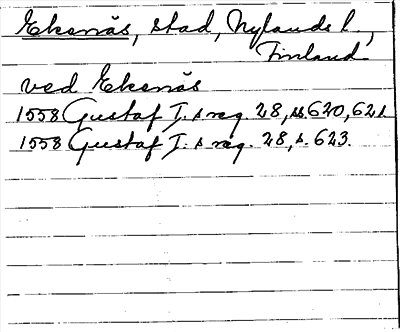 Ekenäs, stad, Nylands l.,
Finland
ved Ekenäs
1558 Gustaf I.s reg. 28, ss. 620, 621.
1558 Gustaf I.s reg. 28, s. 623.